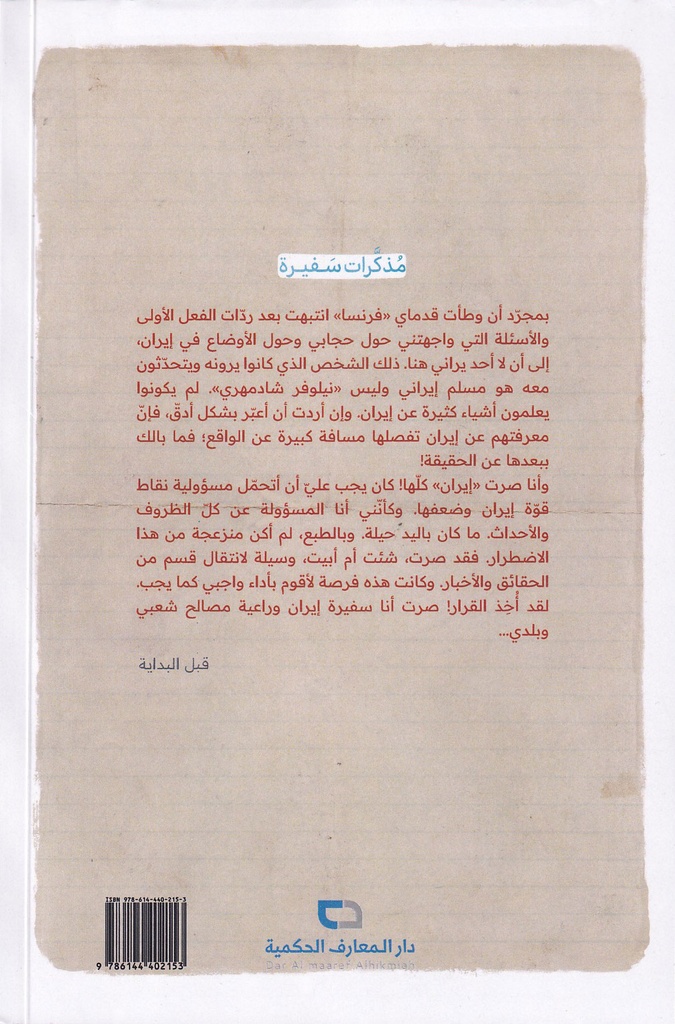 مُذكَّرات سَفيرة
بمجرّد أن وطأت قدماي «فرنسا» انتبهت بعد ردّات الفعل الأولى
والأسئلة التي واجهتني حول حجابي وحول الأوضاع في إيران،
إلى أن لا أحد يراني هنا. ذلك الشخص الذي كانوا يرونه ويتحدّثون
معه هو مسلم إيراني وليس «نيلوفر شادمهري». لم يكونوا
يعلمون أشياء كثيرة عن إيران. وإن أردت أن أعبّر بشكل أدقّ، فإنّ
معرفتهم عن إيران تفصلها مسافة كبيرة عن الواقع؛ فما بالك
ببعدها عن الحقيقة!
وأنا صرت «إيران» كلّها! كان يجب عليّ أن أتحمّل مسؤولية نقاط
قوّة إيران وضعفها. وكأنّني أنا المسؤولة عن كلّ الظروف
والأحداث. ما كان باليد حيلة. وبالطبع، لم أكن منزعجة من هذا
الاضطرار. فقد صرت، شئت أم أبيت، وسيلة لانتقال قسم من
الحقائق والأخبار. وكانت هذه فرصة لأقوم بأداء واجبي كما يجب.
لقد أُخِذ القرار! صرت أنا سفيرة إيران وراعية مصالح شعبي
وبلدي...
قبل البداية
ISBN 978-614-440-215-3
9 786144 402153
دار المعارف الحكمية
Dar Al maaref Alhikmiah